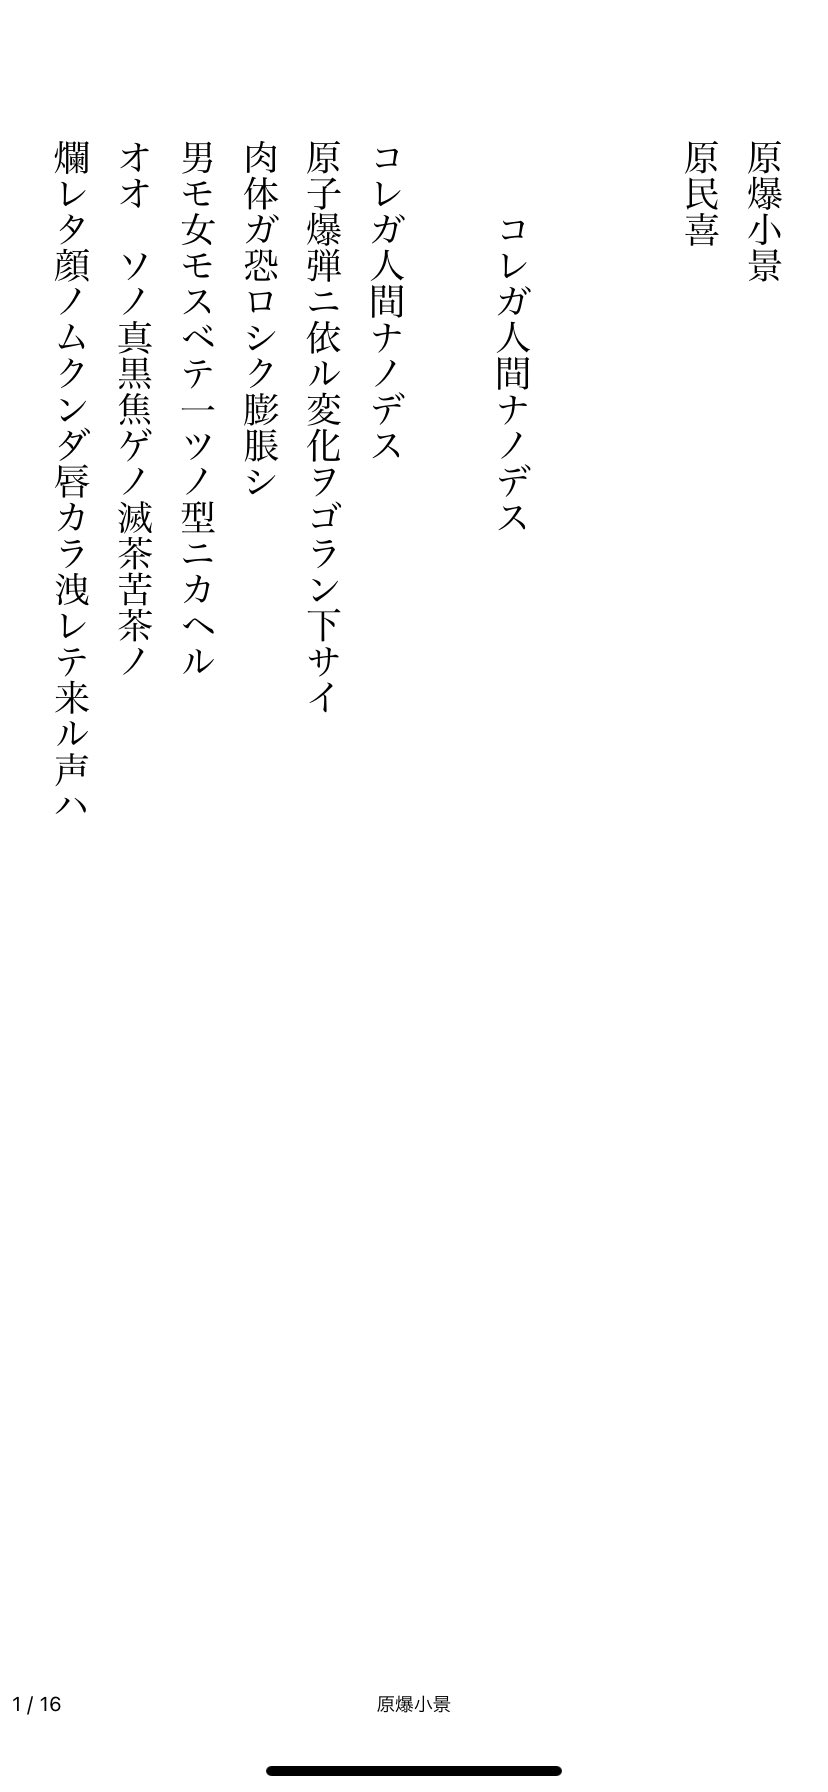 原爆小景
原民喜
コレガ人間ナノデス
コレガ人間ナノデス
原子爆弾ニ依ル変化ヲゴラン下サイ
肉体ガ恐ロシク膨脹シ
男モ女モスベテ一ツノ型ニカヘル
オオ　ソノ真黒焦ゲノ滅茶苦茶ノ
爛レタ顔ノムクンダ唇カラ洩レテ来ル声ハ
1 / 16
原爆小景